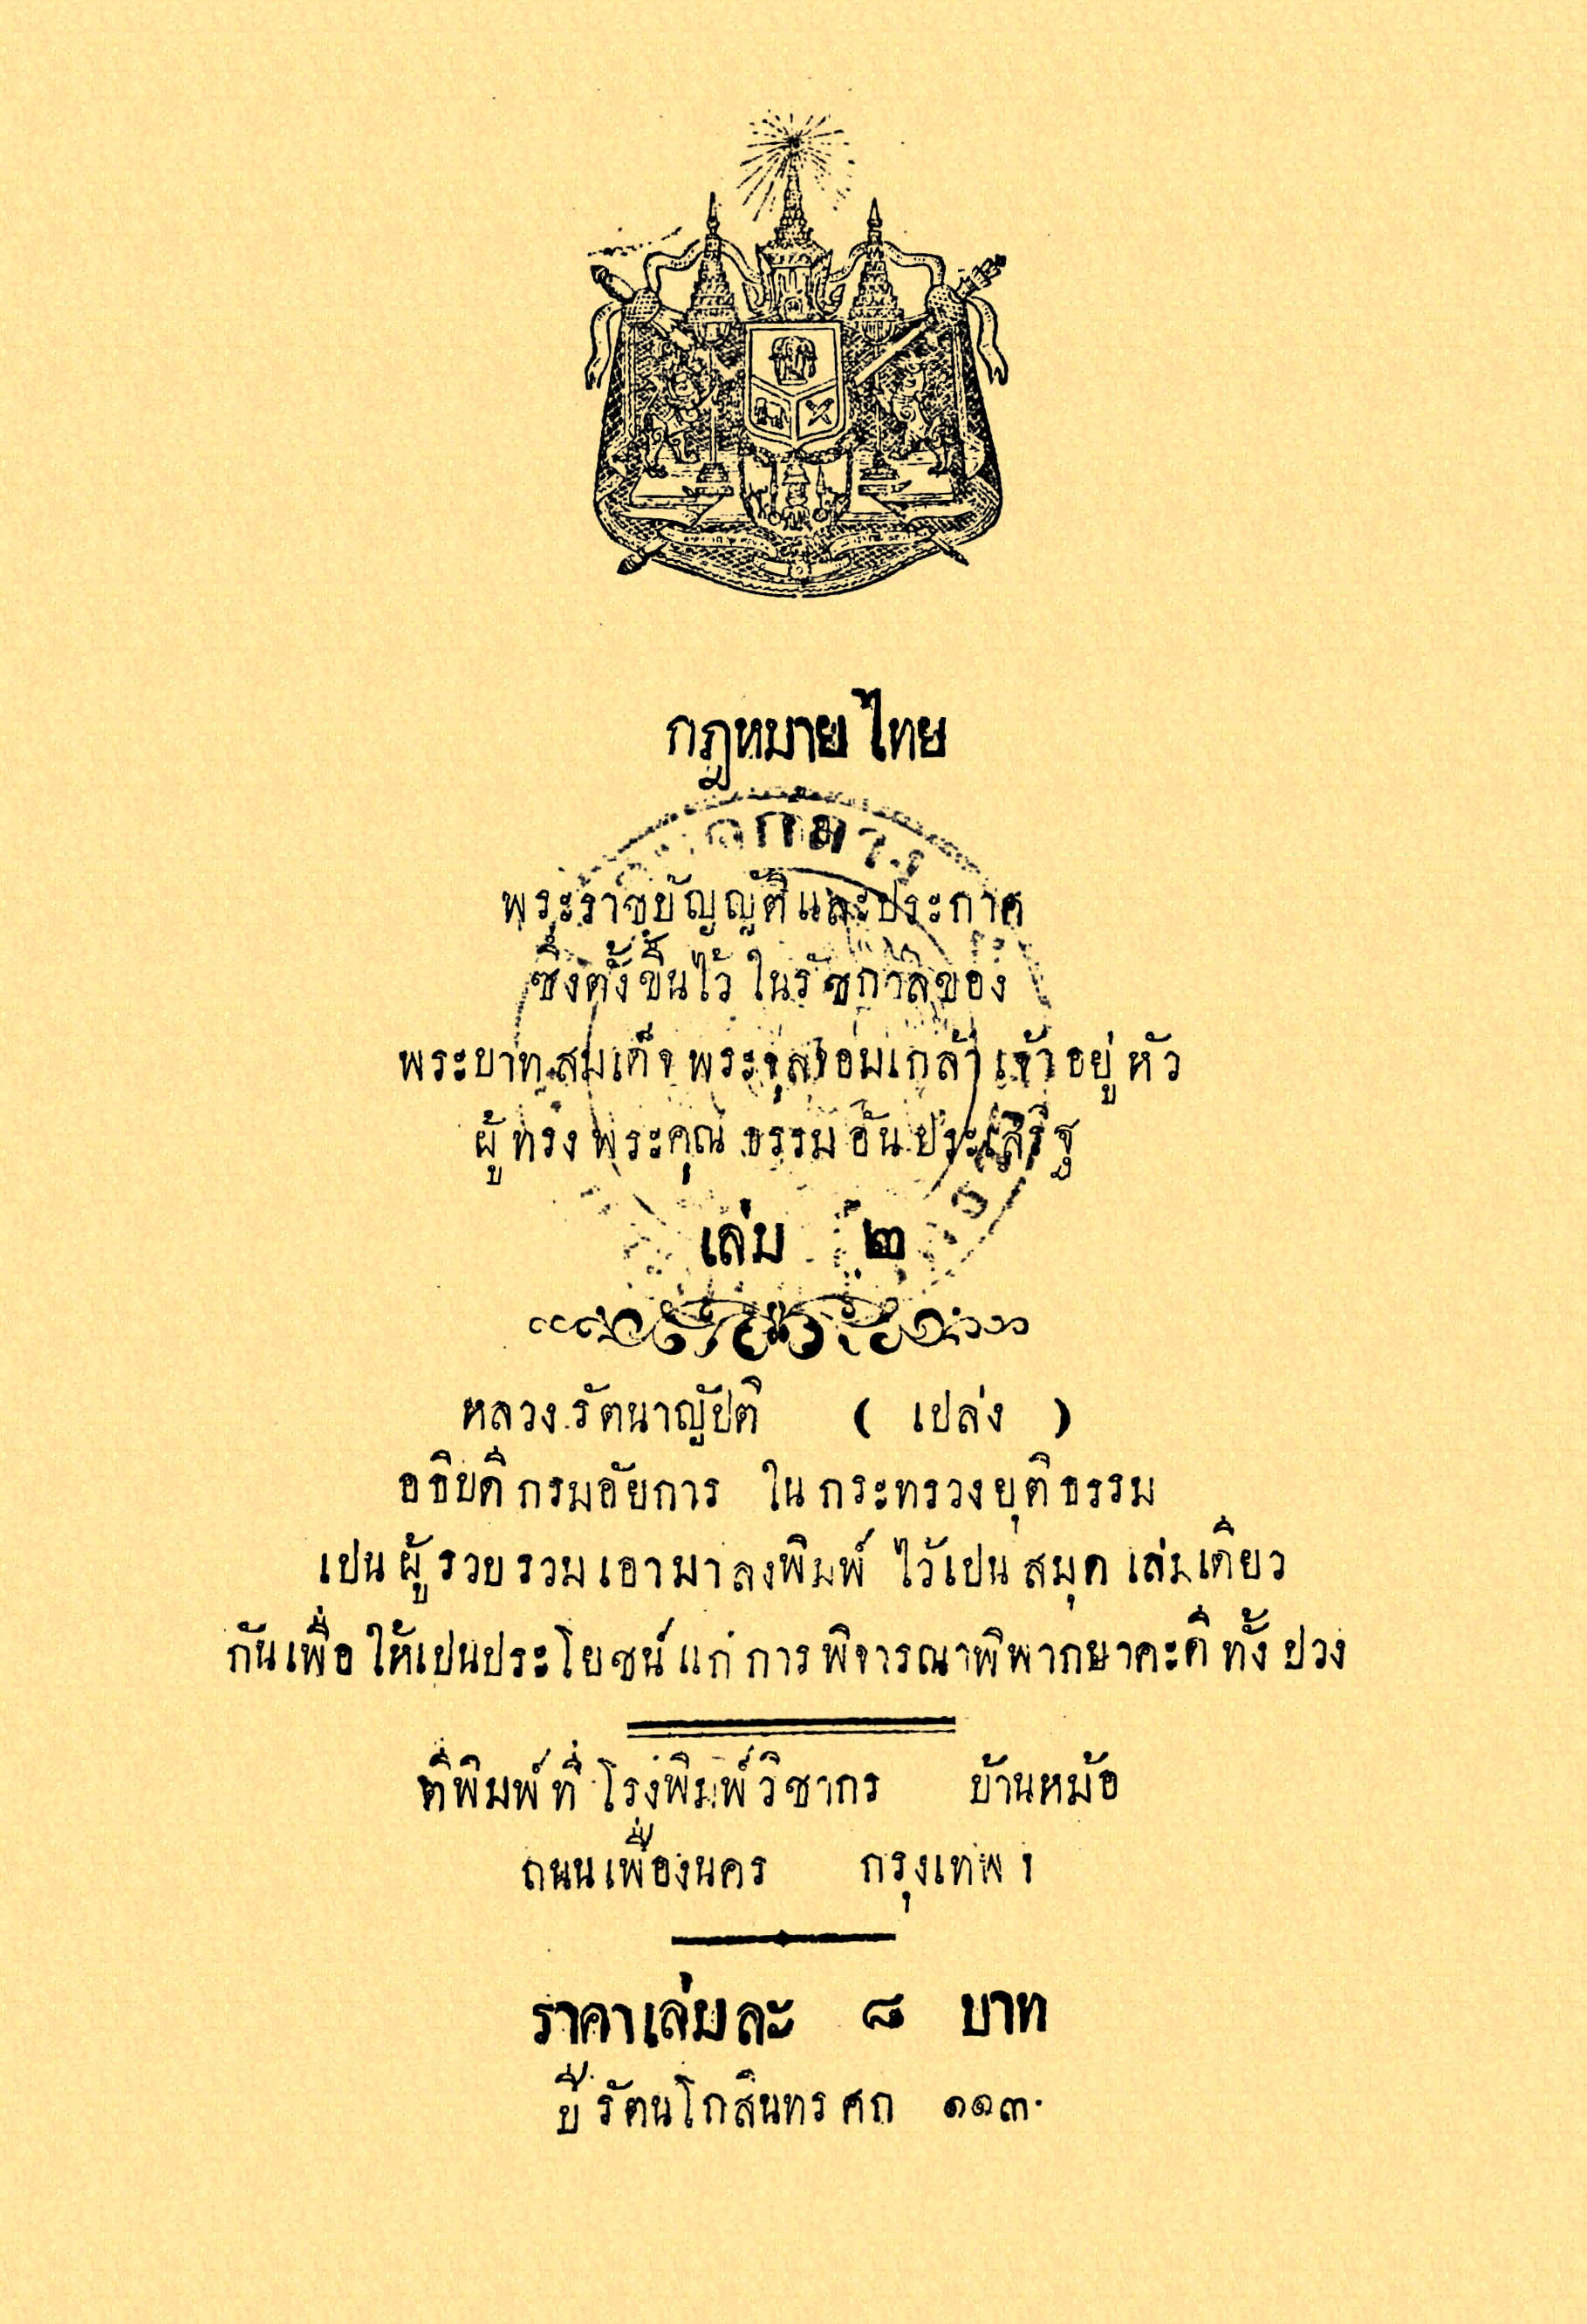 กฎหมายไทย
พระราชบัญญัติแลประกาศ
ซึ่งตั้งขึ้นไว้ ในรัชกาลของ
พระบาทสมเด็จพระจุลจอมเกล้าเจ้าอยู่หัว
ผู้ทรงพระคุณธรรมอันประเสริฐ
เล่ม ๒
หลวงรัตนาญัปติ ( เปล่ง )
อธิบดีกรมอัยการ ในกระทรวงยุติธรรม
เปนผู้รวบรวมเอามาลงพิมพ์ ไว้เปนสมุดเล่มเดียว
กันเพื่อให้เปนประโยชน์แก่การพิจารณาพิพากษาคะดีทั้งปวง
ตีพิมพ์ที่โรงพิมพ์วิชากร บ้านหม้อ
ถนนเฟื่องนคร กรุงเทพฯ
ราคาเล่มละ ๘ บาท
ปีรัตนโกสินทรศก ๑๑๓